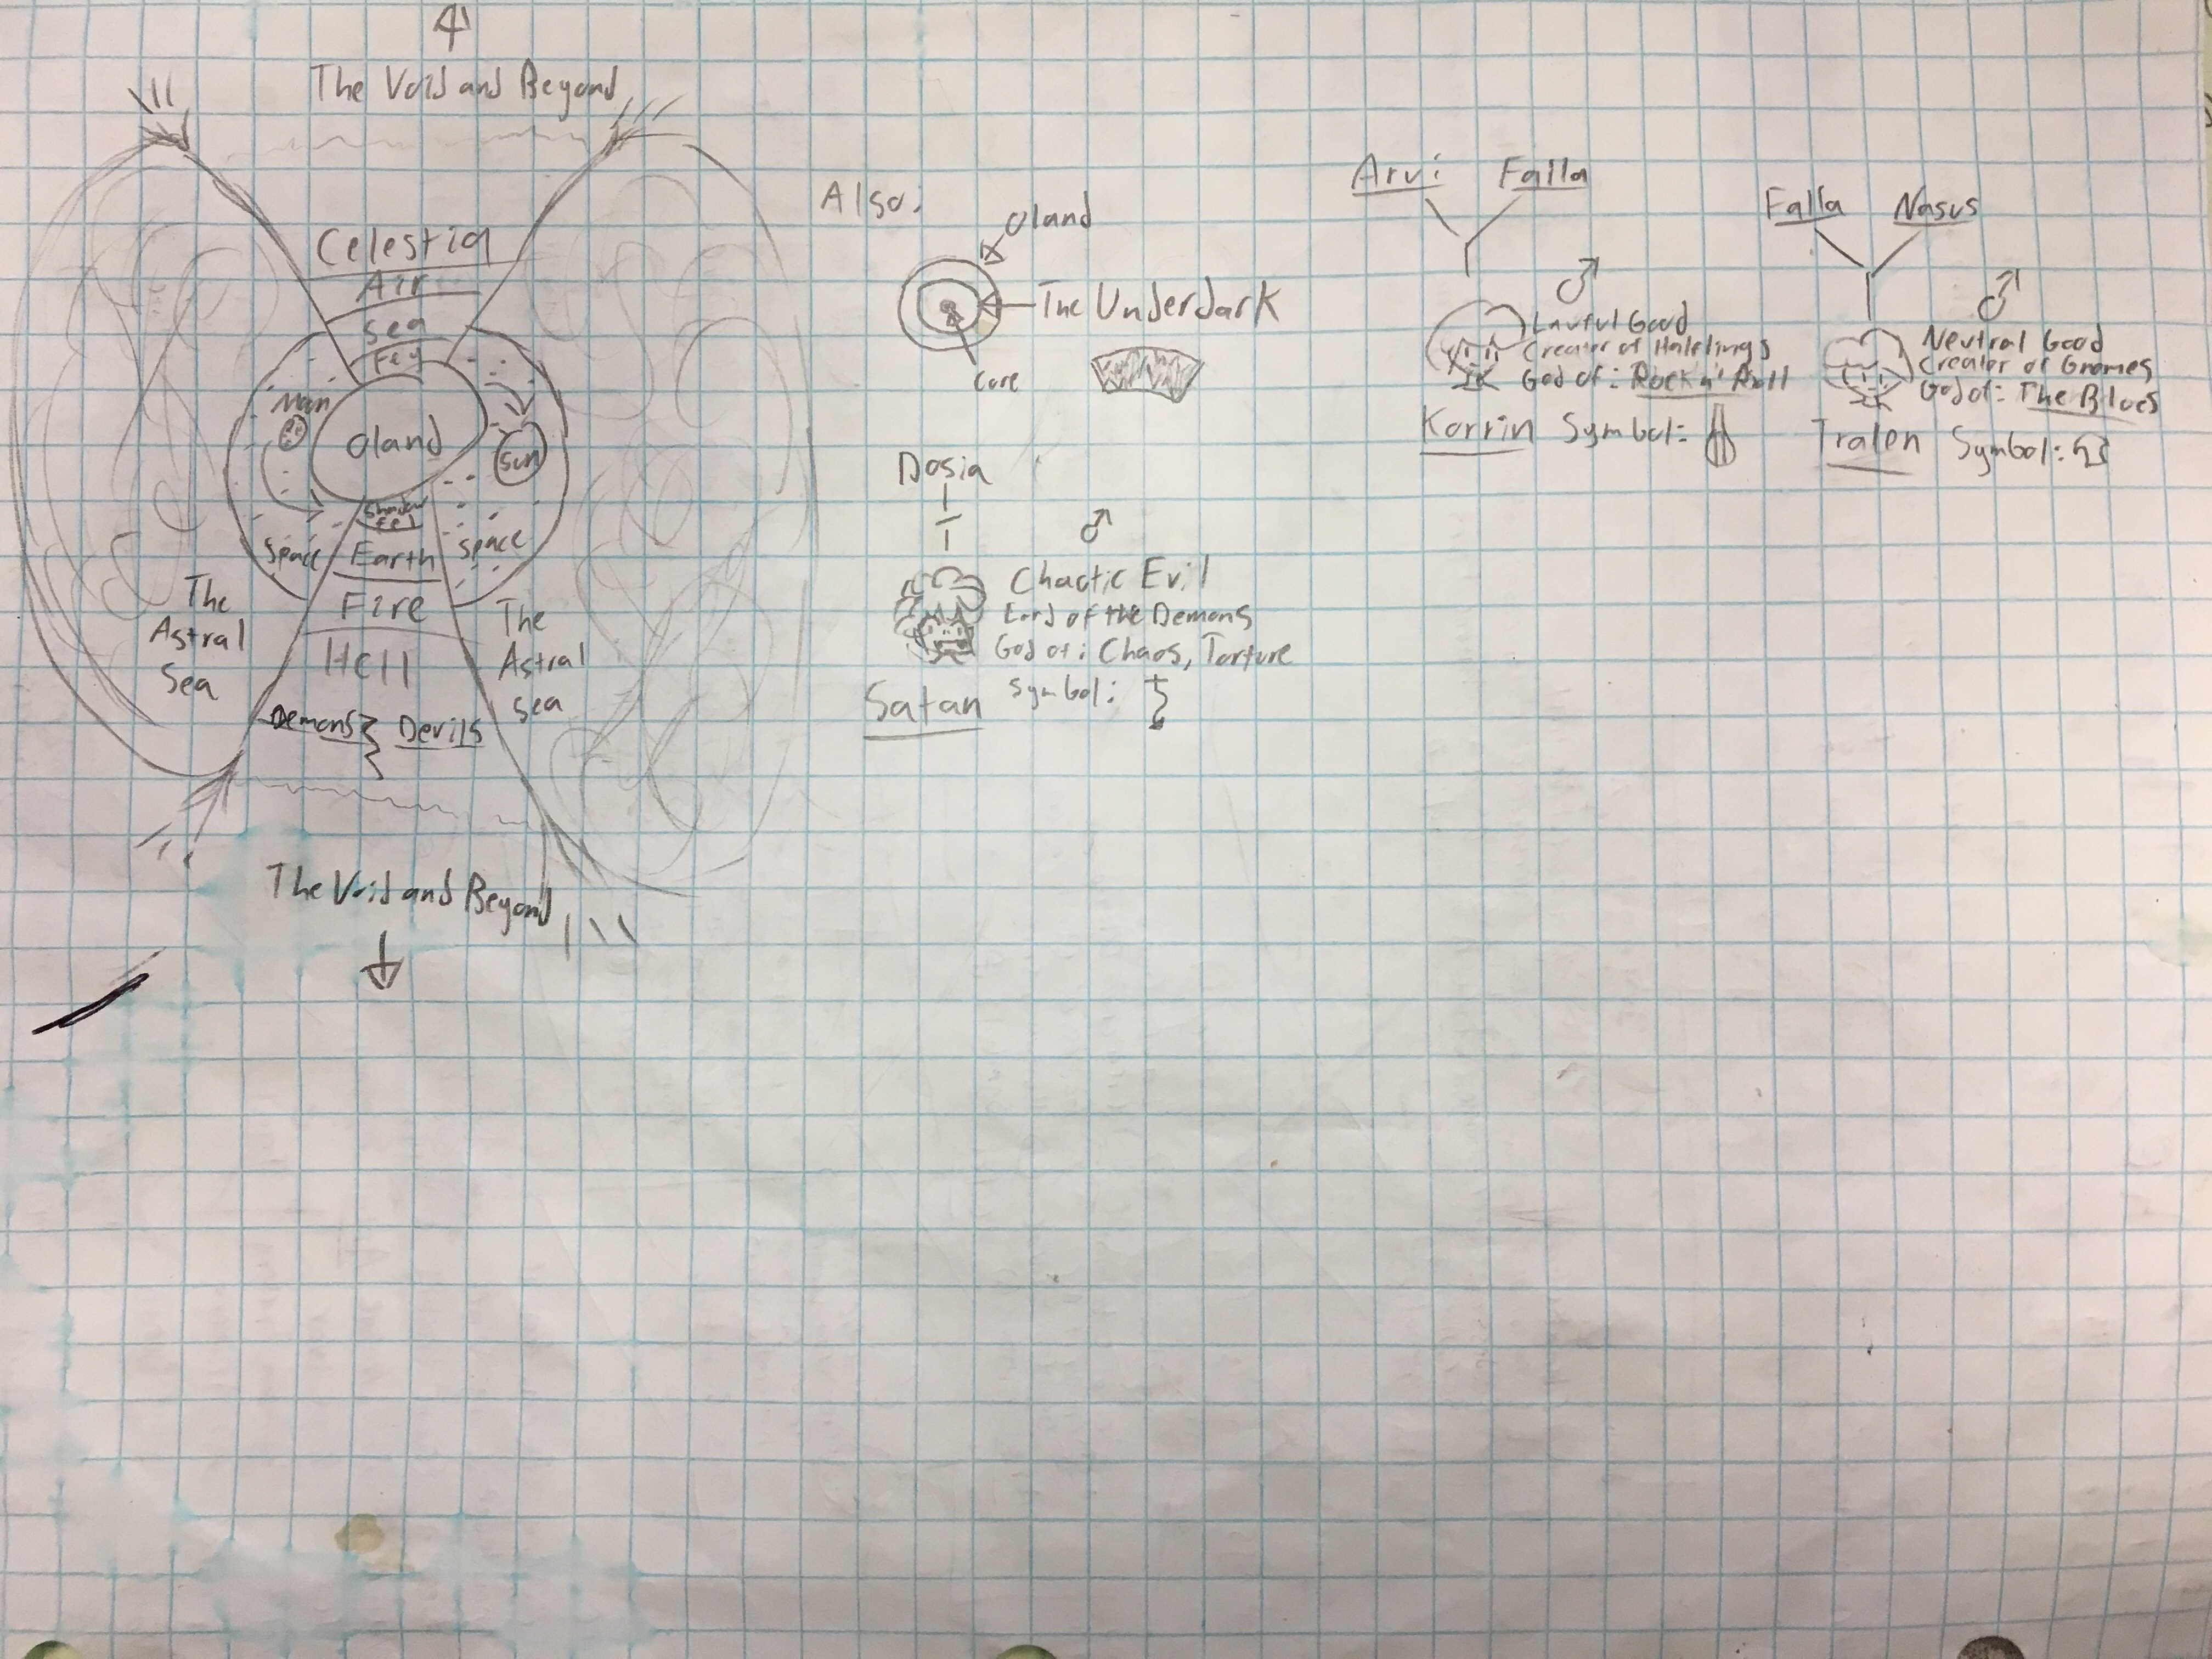 The Void and Beyond
Celestia
Air
Sea
Fey
Moon
Oland
Sun
Shadow
Fel
Space
Earth
Space
Fire
The
Astral
Sea
The
Astral
Sea
Hell
Demons
Devils
The Void and Beyond
Also:
Oland
The Underdark
Core
Dosia
Chaotic Evil
Lord of the Demons
God of: Chaos, Torture
Satan
Symbol:
Arvi Falla
Lawful Good
Creator of Halflings
God of: Rock n' Roll
Korrin Symbol:
Falla Nasus
Neutral Good
Creator of Gnomes
God of: The Blues
Tralen Symbol: